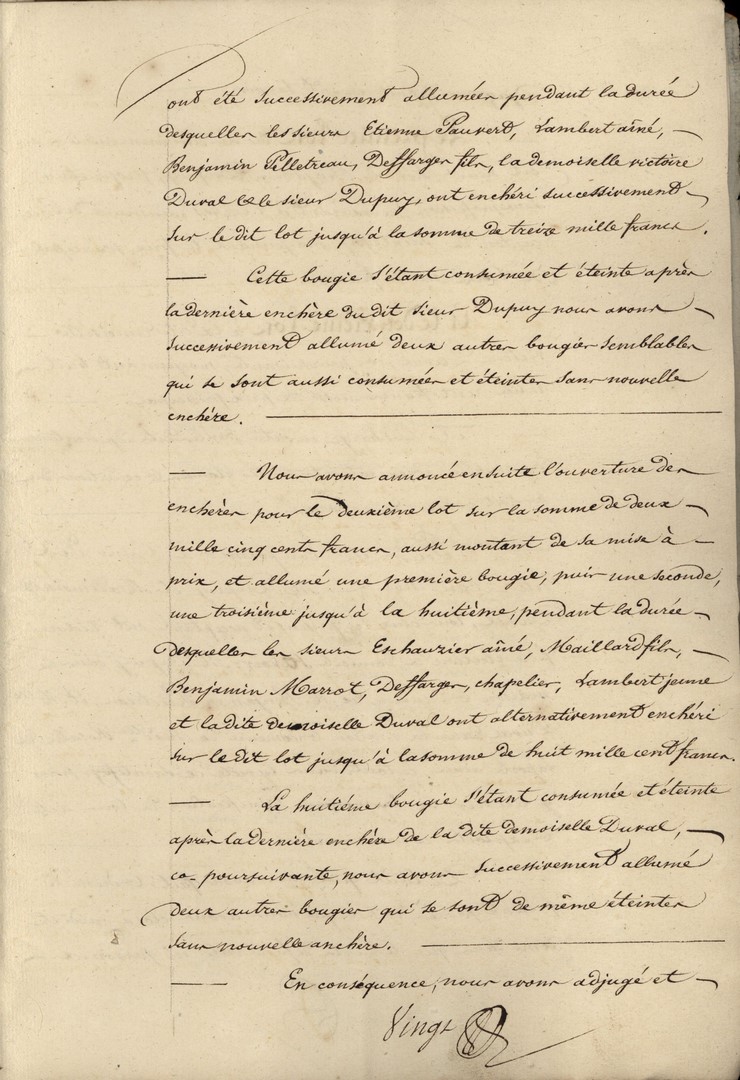 ont été successivement allumées pendant la durée
desquelles les sieurs Etienne Pauvert, Lambert aîné, —
Benjamin Pelletreau, Deffarges fils, la demoiselle victoire
Duval & le sieur Dupuy, ont enchéri successivement —
sur le dit lot jusqu'à la somme de treize mille francs.
— Cette bougie s'étant consumée et éteinte après
la dernière enchère du dit sieur Dupuy nous avons —
successivement allumé deux autres bougies semblables
qui se sont aussi consumées et éteintes sans nouvelle
enchère. —
— Nous avons annoncé ensuite l'ouverture des
enchères pour le deuxième lot sur la somme de deux —
mille cinq cents francs, aussi montant de sa mise à —
prix, et allumé une première bougie, puis une seconde,
une troisième jusqu'à la huitième, pendant la durée —
desquelles les sieurs Eschauzier aîné, Maillard fils, —
Benjamin Marrot, Deffarges, chapelier, Lambert jeune
et la dite demoiselle Duval ont alternativement enchéri
sur le dit lot jusqu'à la somme de huit mille cent francs.
— La huitième bougie s'étant consumée et éteinte
après la dernière enchère de la dite demoiselle Duval, —
co-poursuivante, nous avons successivement allumé
deux autres bougies qui se sont de même éteintes
sans nouvelle anchère. —
— En conséquence, nous avons adjugé et —
Vingt